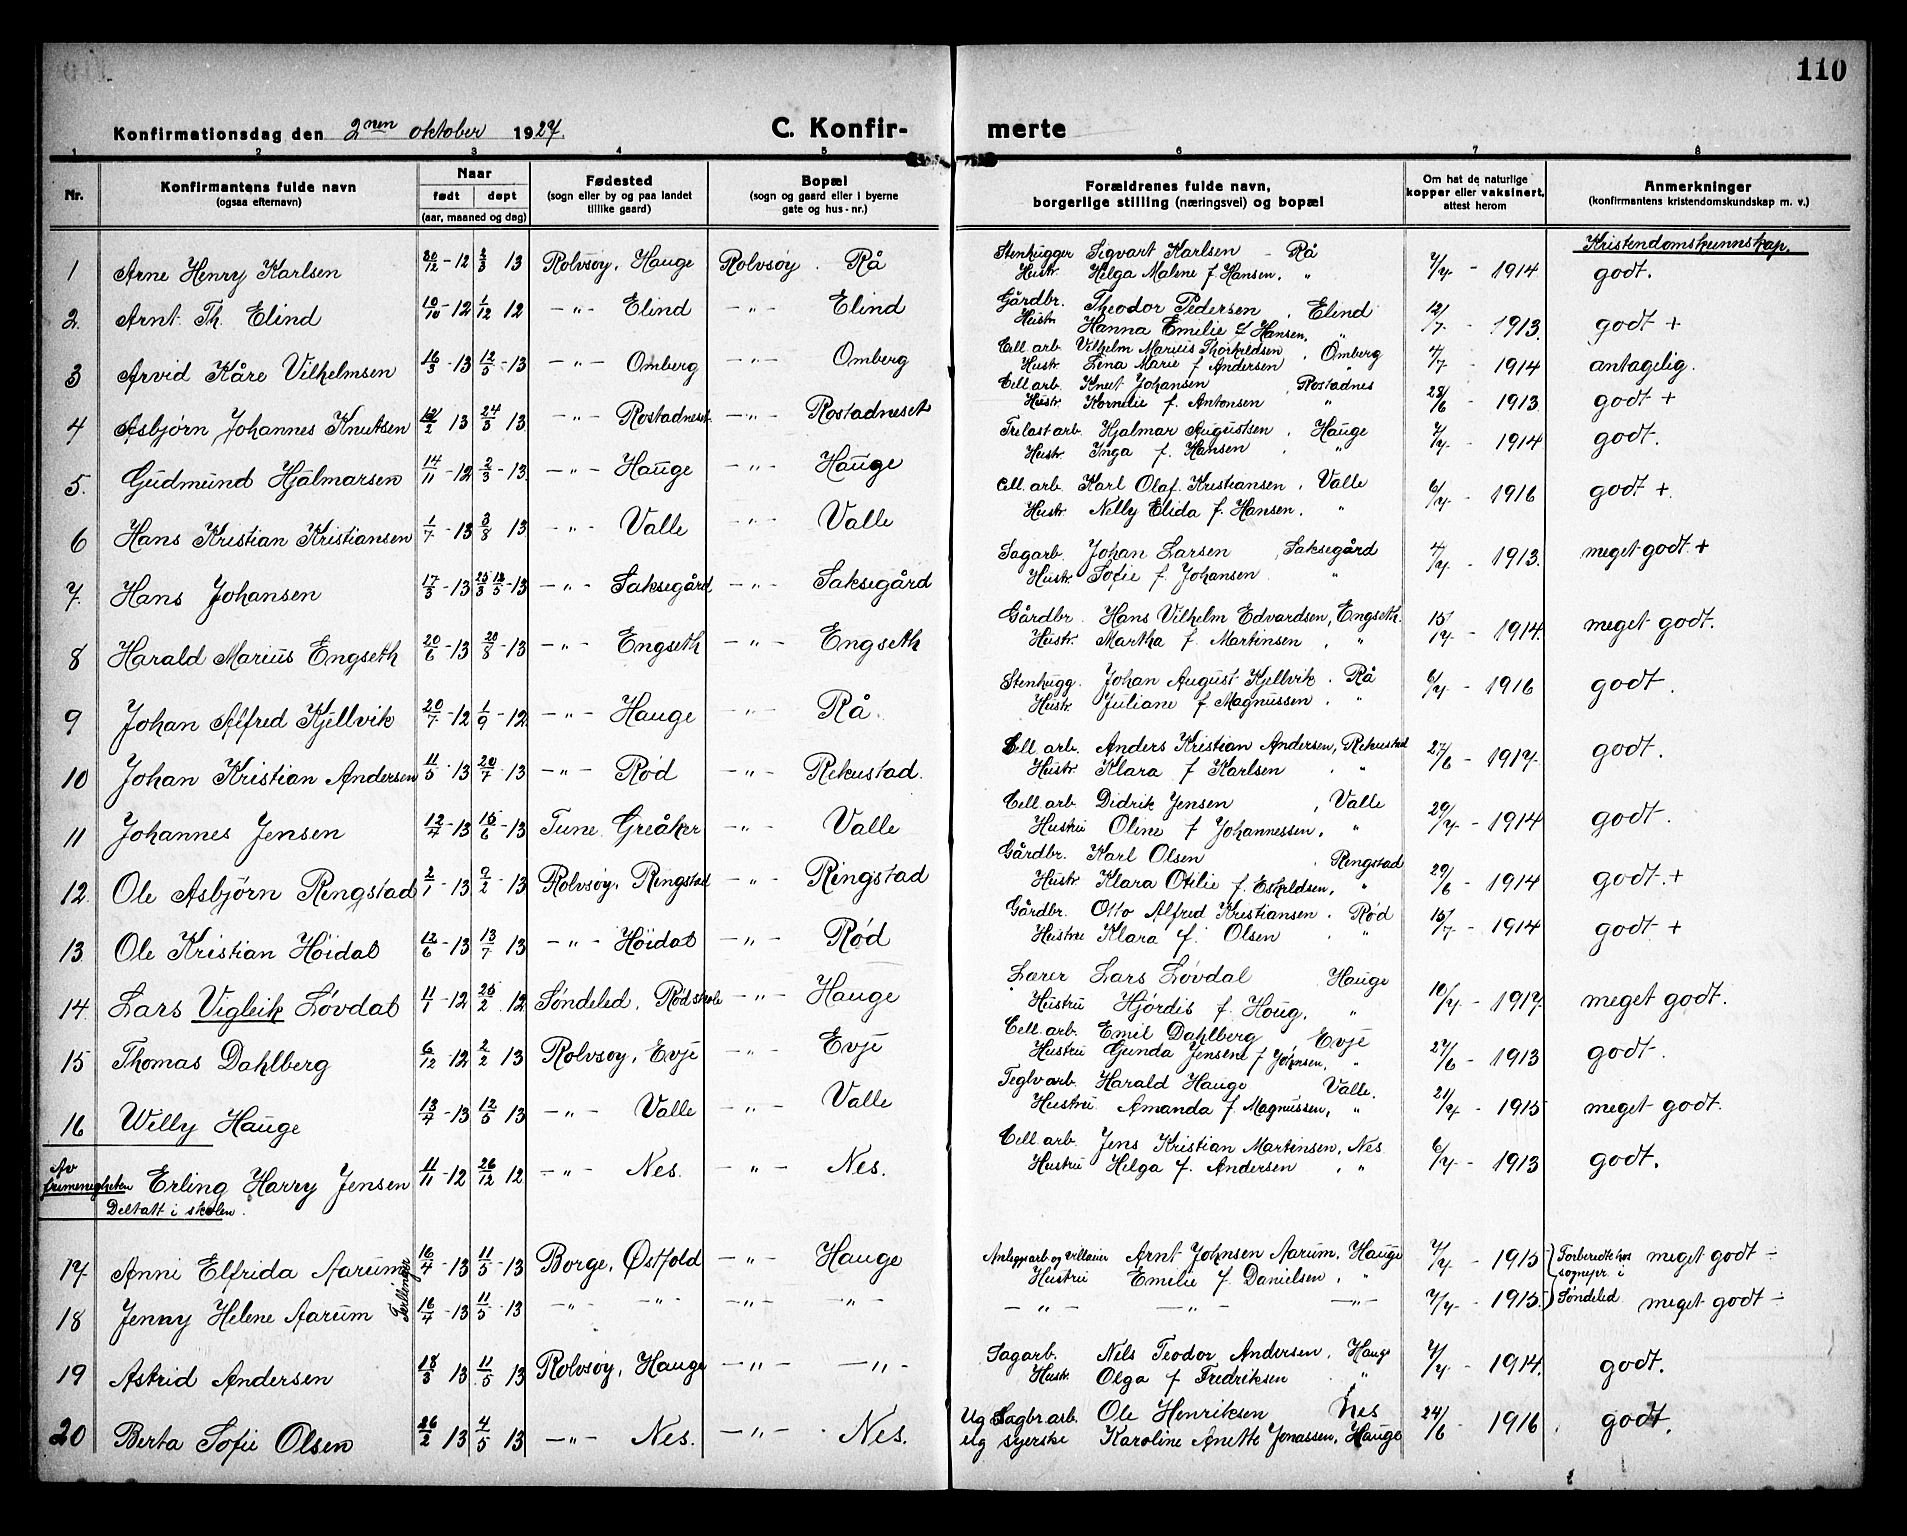 110
Konfirmationsdag den 2nen oktober 1927. C. Konfir- merte
1 2 3 4 5 6 7 8
Nr. Konfirmantens fulde navn (ogsaa efternavn) Naar født døpt (aar, maaned og dag) Fødested (sogn eller by og paa landet tillike gaard) Bopæl (sogn og gaard eller i byerne gate og hus-nr.) Forældrenes fulde navn, borgerlige stilling (næringsvei) og bopæl Om hat de naturlige kopper eller vaksinert, attest herom Anmerkninger (konfirmantens kristendomskundskap m. v.)
Kristendomskunnskap.
1 Arne Henry Karlsen 20/12 - 12 2/3 13 Rolvsøy, Hauge Rolvsøy. Rå Stenhugger Sigvart Karlsen - Rå 7/7 - 1914 godt.
Hustr. Helga Malene f. Hansen, "
2. Arnt Th. Elind 10/10 - 12 1/12 12 -"- Elind -"- Elind Gårdbr. Theodor Pedersen, Elind 12/7 - 1913. godt +
Hustr Hanna Emelie L Hansen, "
3 Arvid Kåre Vilhelmsen 16/3 - 13 12/5 - 13 -"- Omberg -"- Omberg Cell. arb. Vilhelm Marius Thorkildsen, Omberg 4/7 - 1914 antagelig.
Hustr. Lena Marie f Andersen "
4 Asbjørn Johannes Knutsen 12/2 13 24/3 13 -"- Rostadneset -"- Rostadneset Cell arb. Knut Johansen, Rostadnes 28/6 - 1913. godt +
Hustr. Kornelie f. Antonsen "
5. Gudmund Hjalmarsen 14/11 - 12 2/3 - 13 -"- Hauge -"- Hauge Trelast arb. Hjalmar Augustsen, Hauge 7/7 - 1914 godt.
Hustr. Inga f. Hansen. "
6 Hans Kristian Kristiansen 1/7 - 13 3/8 13 -"- Valle -"- Valle Cell. arb. Karl Olaf Kristiansen, Valle 6/7 - 1916 godt +.
Hustr. Nelly Elida f. Hansen. "
7. Hans Johansen 17/3 - 13 25/3 13/5 - 13 -"- Saksegård -"- Saksegård Sagarb. Johan Larsen, Saksegård 4/7 - 1913. meget godt +
Hustr. Sofie f. Johansen. "
8 Harald Marius Engseth 20/6 - 13 20/8 - 13 -"- Engseth -"- Engseth Gårdbr. Hans Vilhelm Edvardsen, Engseth. 15/17 - 1914. meget godt.
Hustr. Martha f. Martinsen, "
9 Johan Alfred Kjellvik 20/7 - 12 1/9 - 12 -"- Hauge -"- Rå. Stenhugg. Johan August Kjellvik. Rå 6/7 - 1916 godt.
Hustr. Juliane f Magnussen. "
10 Johan Kristian Andersen 11/5 - 13 20/7 - 13 -"- Rød -"- Rekustad. Cell. arb. Anders Kristian Andersen, Rekustad 27/6 - 1917. godt.
Hustr. Klara f Karlsen. "
11 Johannes Jensen 12/4 - 13 15/6 - 13 Tune Greåker -"- Valle Cell. arb. Didrik Jensen, Valle 29/7 - 1914 godt.
Hustru Oline f Johannessen, "
12. Ole Asbjørn Ringstad 2/1 - 13 9/2 - 13 Rolvsøy, Ringstad -"- Ringstad Gårdbr. Karl Olsen, Ringstad 29/6 - 1914 godt. +
Hustr. Klara Otilie f. Eskildsen, "
13. Ole Kristian Høidal 12/6 - 13 13/7 13 -"- Høidal -"- Rød Gårdbr. Otto Alfred Kristiansen. Rød 15/7 - 1914 godt +
Hustru Klara f. Olsen "
14. Lars Vigleik Løvdal 11/1 - 12 25/2 12 Søndeled, Rød skole -"- Hauge Lærer Lars Løvdal, Hauge 10/7 - 1917. meget godt.
Hustru Hjördis f. Houg, "
15 Thomas Dahlberg 6/12 - 12 2/2 13 Rolvsøy, Evje -"- Evje Cell. arb. Emil Dahlberg Evje 27/6 - 1913 godt.
Hustru Gunda Jensine f Johnsen, "
16 Willy Hauge 13/4 - 13 12/5 13 -"- Valle -"- Valle Teglv arb. Harald Hauge Valle. 21/7 - 1915 meget godt.
Hustru Amanda f. Magnussen, "
Av frimenigheten Erling Harry Jensen 11/11 - 12 26/12 12 -"- Nes. -"- Nes. Cell. arb. Jens Kristian Martinsen, Nes 6/7 - 1913 godt.
Deltatt i skolen. Hustru Helga f. Andersen, "
17. Anni Elfrida Aarum 16/4 - 13 11/5 - 13 Borge, Østfold -"- Hauge Anleggsarb og villaeier Arnt Johnsen Aarum, Hauge 7/7 - 1915 Forberedt hos sognepr. i Søndeled meget godt -
Tvillinger Hustru Emelie f. Danielsen, "
18 Jenny Helene Aarum 16/4 - 13 11/5 13 -"- -"- -"- -"- -"- -"- -"- 7/7 - 1915. meget godt -
19 Astrid Andersen 18/3 13 11/5 13 Rolvsøy, Hauge -"- -"- Sagarb. Nils Teodor Andersen, Hauge 7/7 - 1914. godt.
Hustr. Olga f Fredriksen "
20 Berta Sofie Olsen 26/2 13 4/5 13 -"- Nes. -"- Nes. Ug Sagbr. arb. Ole Henriksen Nes 24/6 - 1916. godt.
Ug syerske Karoline Anette Jonassen, Hauge